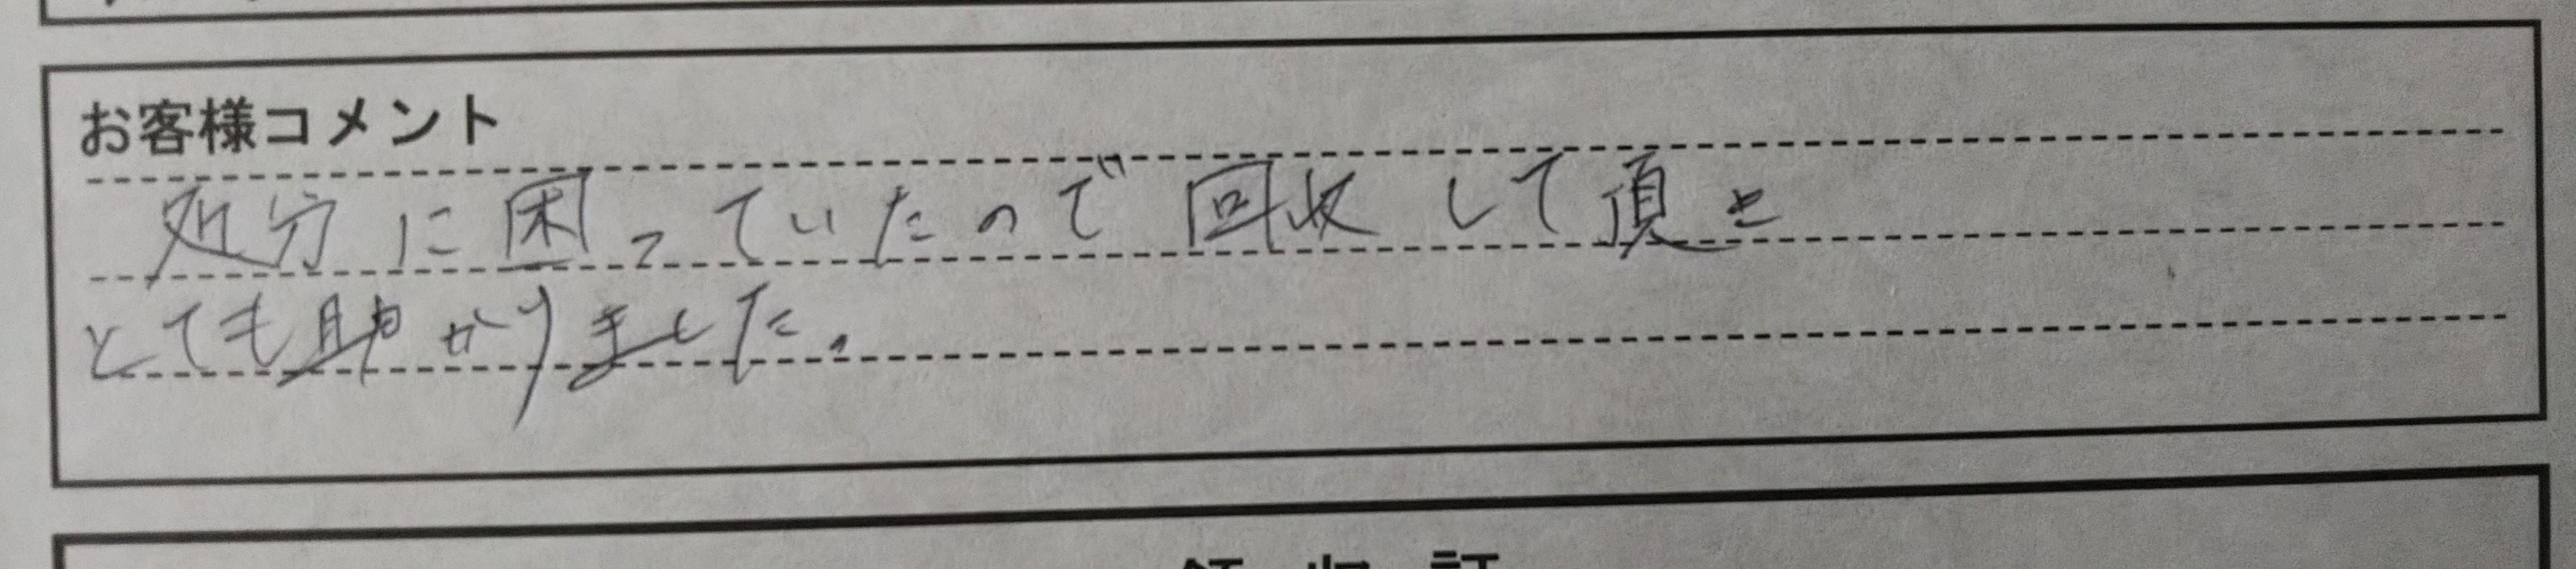 お客様コメント
処分に困っていたので回収して頂き
とても助かりました。
領収証